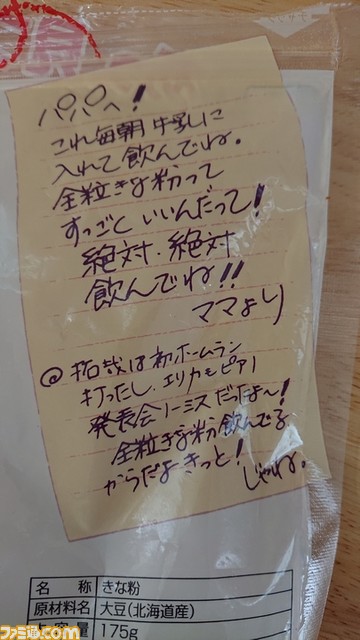 パパへ！
これ毎朝牛乳に
入れて飲んでね。
全粒きな粉って
すっごくいいんだって！
絶対・絶対
飲んでね!!
ママより
◎拓哉は初ホームラン
打ったし、エリカもピアノ
発表会ノーミスだったよ〜！
全粒きな粉飲んでる
からだよきっと！
じゃね。
名称 きな粉
原材料名 大豆(北海道産)
内容量 175g
ファミ通.com